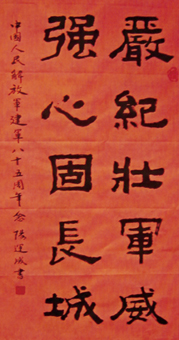 嚴紀壯軍威
强心固長城
中國人民解放軍建軍八十五周年念 張 成書